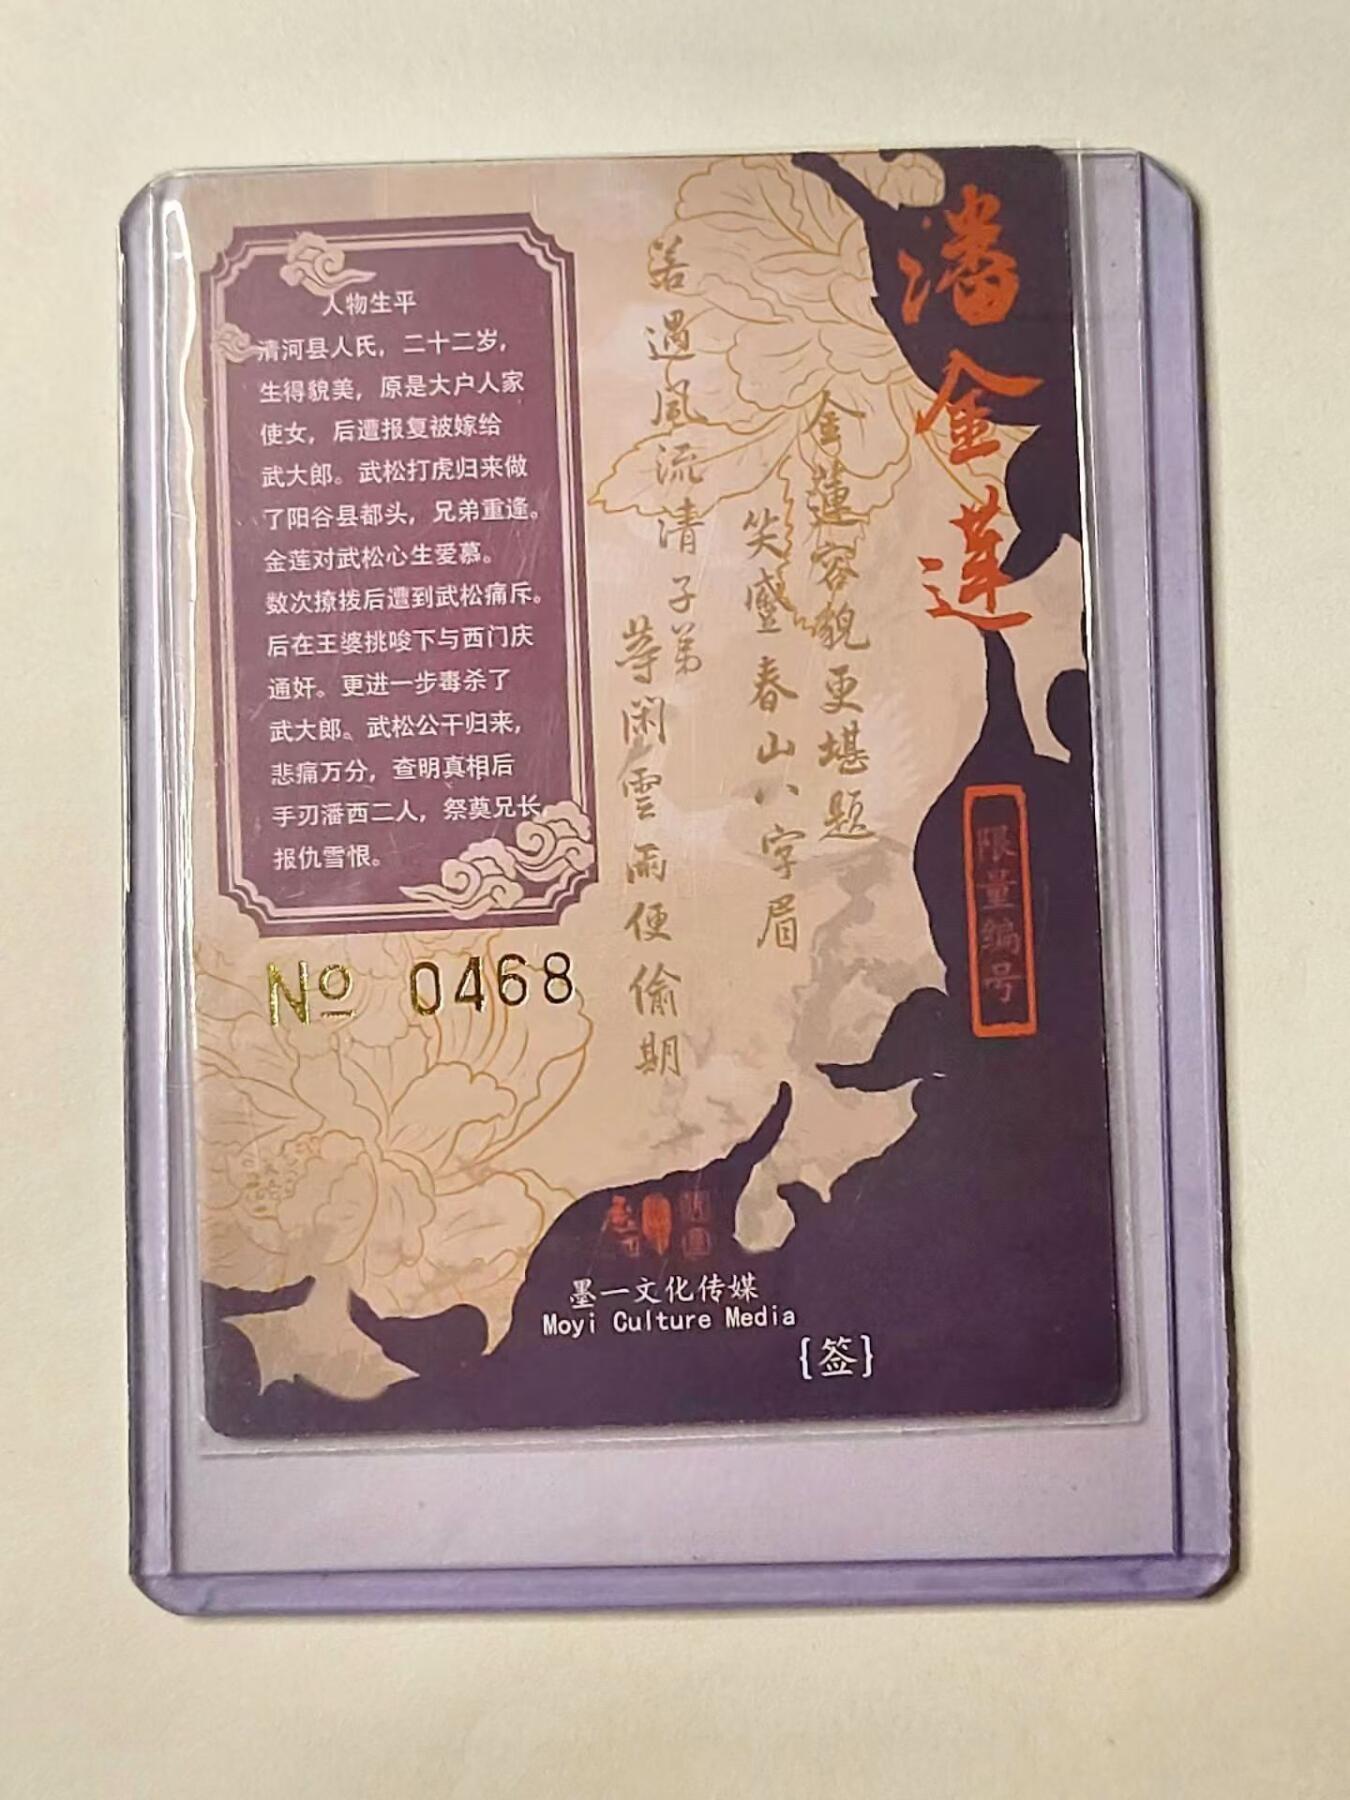 潘金莲
限量编号
金蓮容貌更堪題
笑蹙春山八字眉
若遇風流清子弟
等闲雲雨便偷期
人物生平
清河县人氏，二十二岁，
生得貌美，原是大户人家
使女，后遭报复被嫁给
武大郎。武松打虎归来做
了阳谷县都头，兄弟重逢。
金莲对武松心生爱慕。
数次撩拨后遭到武松痛斥。
后在王婆挑唆下与西门庆
通奸。更进一步毒杀了
武大郎。武松公干归来，
悲痛万分，查明真相后
手刃潘西二人，祭奠兄长
报仇雪恨。
№ 0468
墨一文化传媒
Moyi Culture Media
{签}